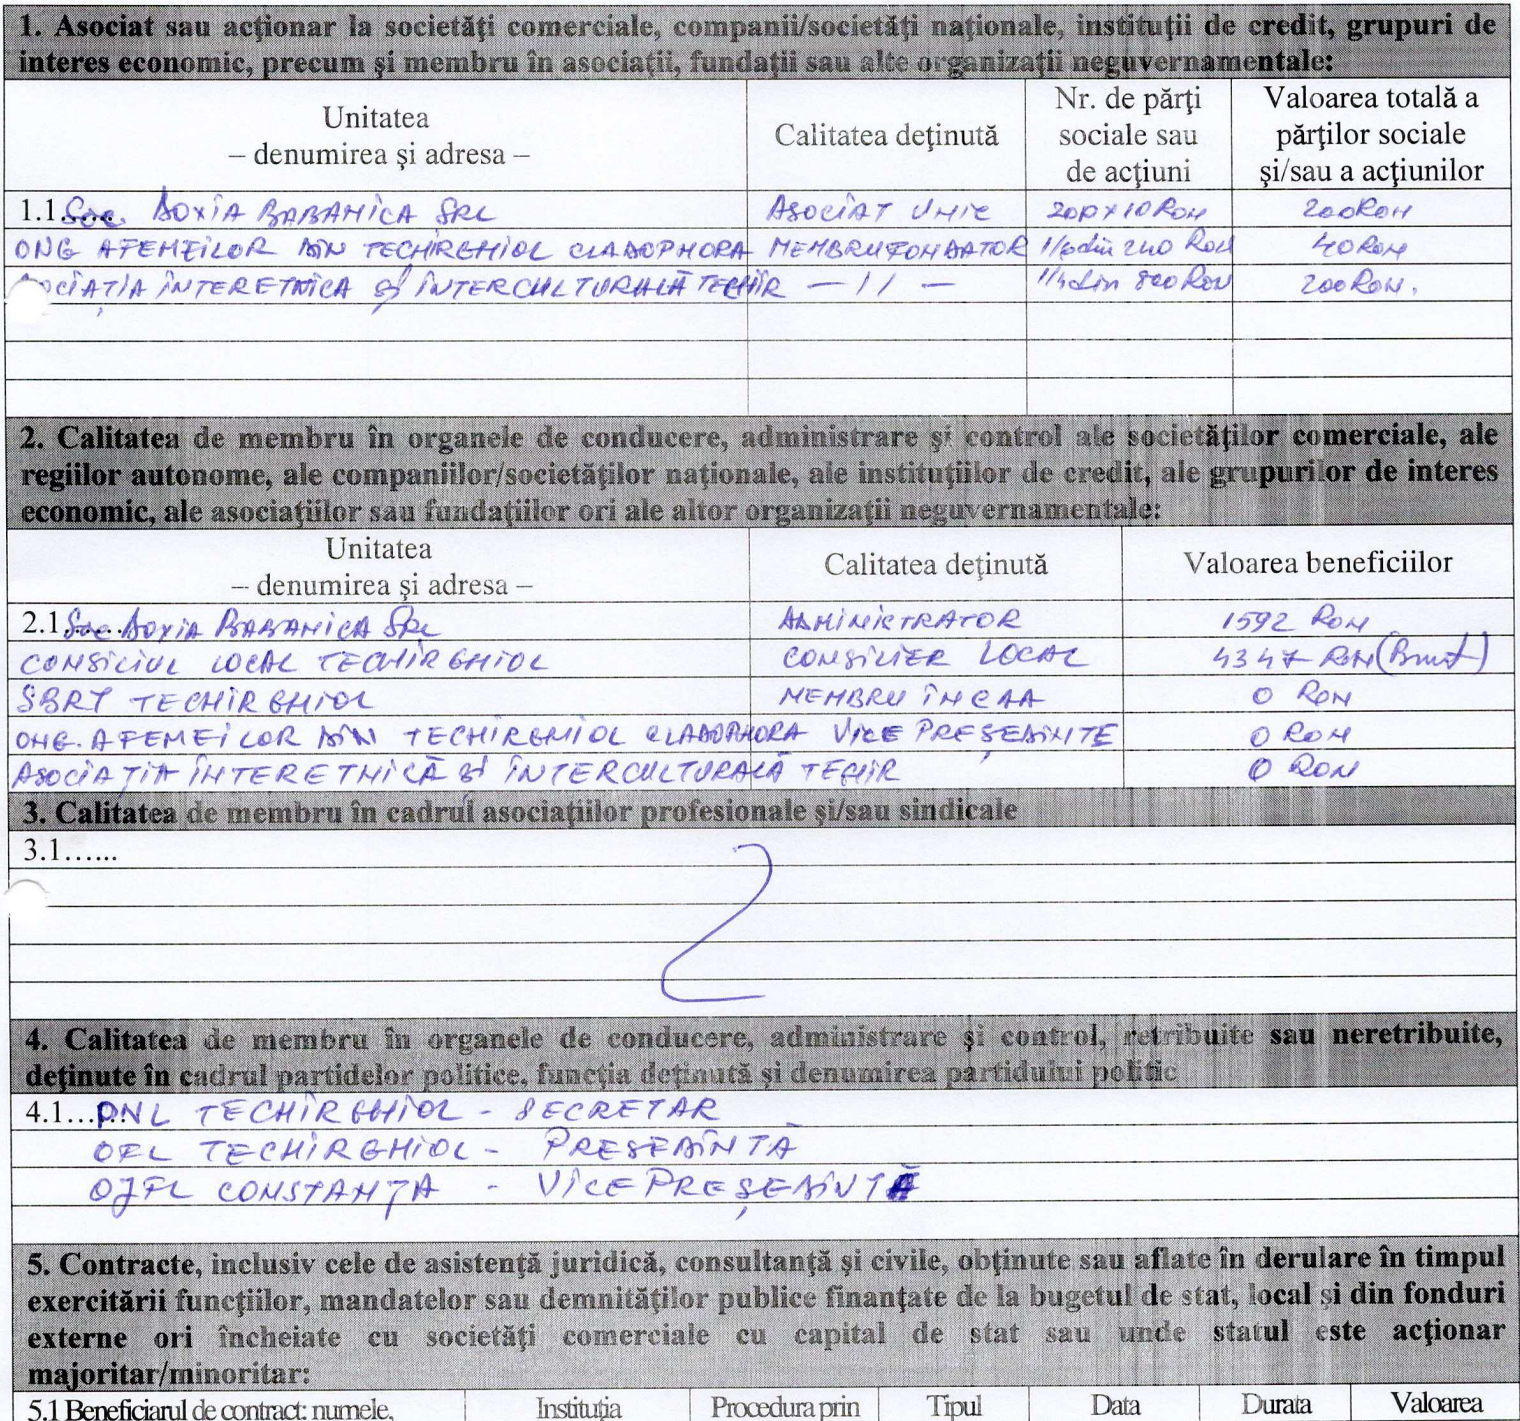 1. Asociat sau acţionar la societăţi comerciale, companii/societăţi naţionale, instituţii de credit, grupuri de
interes economic, precum şi membru în asociaţii, fundaţii sau alte organizaţii neguvernamentale:
Unitatea
– denumirea şi adresa –
Calitatea deţinută
Nr. de părţi
sociale sau
de acţiuni
Valoarea totală a
părţilor sociale
şi/sau a acţiunilor
1.1 Soc. DOXIA BABANICA SRL ASOCIAT UNIC 200X10RON 200RON
ONG AFEMEILOR DIN TECHIRGHIOL CLADOPHORA MEMBRU FONDATOR 1/6 din 240 RON 40RON
OCIATIA INTERETNICA ŞI INTERCULTURALĂ TECHIR — 11 — 1/4 din 800 RON 200RON.
2. Calitatea de membru în organele de conducere, administrare şi control ale societăţilor comerciale, ale
regiilor autonome, ale companiilor/societăţilor naţionale, ale instituţiilor de credit, ale grupurilor de interes
economic, ale asociaţiilor sau fundaţiilor ori ale altor organizaţii neguvernamentale:
Unitatea
– denumirea şi adresa –
Calitatea deţinută
Valoarea beneficiilor
2.1 Soc DOXIA BABANICA SRL ADMINISTRATOR 1592 RON
CONSILIUL LOCAL TECHIRGHIOL CONSILIER LOCAL 4347 RON (Brut)
SBRT TECHIRGHIOL MEMBRU ÎN CAA 0 RON
ONG. AFEMEILOR DIN TECHIRGHIOL CLADOPHORA VICE PREŞEDINTE 0 RON
ASOCIAŢIA INTERETNICĂ ŞI INTERCULTURALĂ TECHIR 0 RON
3. Calitatea de membru în cadrul asociaţiilor profesionale şi/sau sindicale
3.1......
4. Calitatea de membru în organele de conducere, administrare şi control, retribuite sau neretribuite,
deţinute în cadrul partidelor politice, funcţia deţinută şi denumirea partidului politic
4.1...... PNL TECHIRGHIOL - SECRETAR
OFL TECHIRGHIOL - PRESEDINTĂ
OJFL CONSTANŢA - VICEPREŞEDINTĂ
5. Contracte, inclusiv cele de asistenţă juridică, consultanţă şi civile, obţinute sau aflate în derulare în timpul
exercitării funcţiilor, mandatelor sau demnităţilor publice finanţate de la bugetul de stat, local şi din fonduri
externe ori încheiate cu societăţi comerciale cu capital de stat sau unde statul este acţionar
majoritar/minoritar:
5.1 Beneficiarul de contract: numele, Instituţia Procedura prin Tipul Data Durata Valoarea